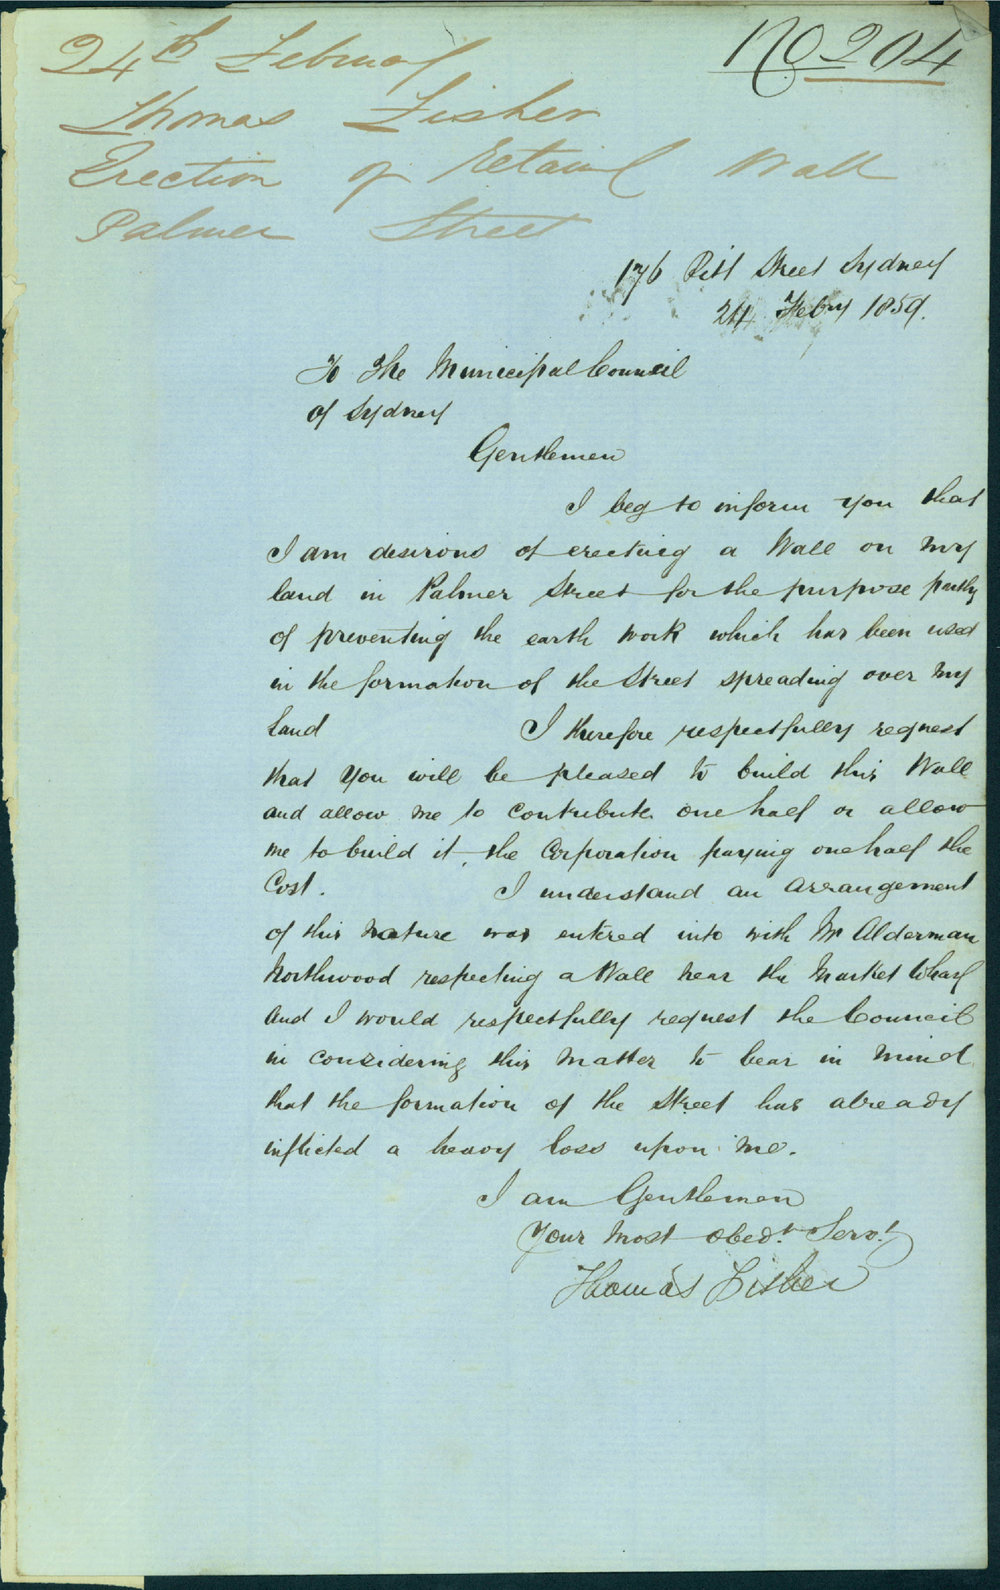 No 204
24th February
Thomas Fisher
Erection of retaining Wall
Palmer Street
176 Pitt Street Sydney
24 Feby 1859.
To The Municipal Council
of Sydney
Gentlemen
I beg to inform you that
I am desirous of erecting a Wall on my
land in Palmer Street for the purpose partly
of preventing the earth work which has been used
in the formation of the Street spreading over my
land I therefore respectfully request
that you will be pleased to build this Wall
and allow me to contribute one half or allow
me to build it, the Corporation paying one half the
Cost. I understand an arrangement
of this nature was entered into with Mr Alderman
Northwood respecting a Wall near the Market Wharf
and I would respectfully request the Council
in considering this matter to bear in mind
that the formation of the Street has already
inflicted a heavy loss upon me.
I am Gentlemen
Your most obedt Servt
Thomas Fisher